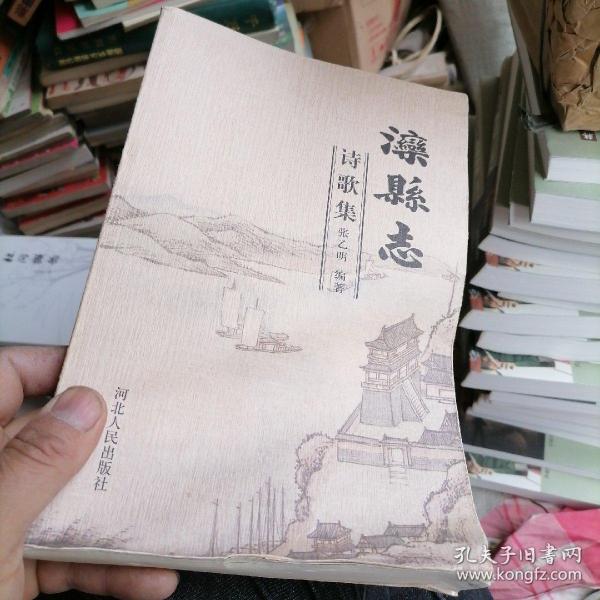 灤縣志
诗歌集
张乙明 编著
河北人民出版社
孔夫子旧书网
www.kongfz.com